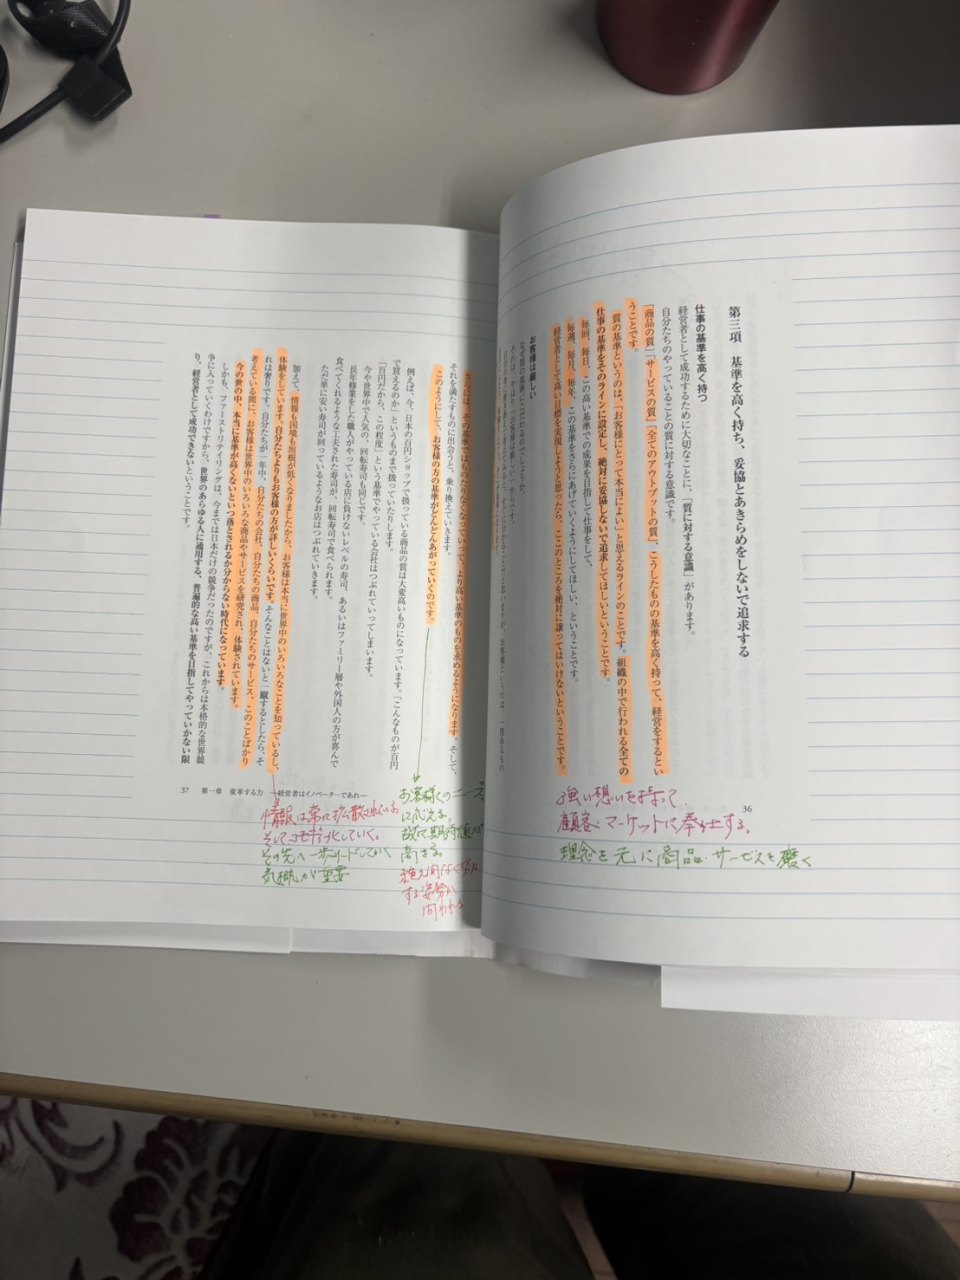 第三項　基準を高く持ち、妥協とあきらめをしないで追求する
仕事の基準を高く持つ
経営者として成功するために大切なことに、「質に対する意識」があります。
自分たちのやっていることの質に対する意識です。
「商品の質」「サービスの質」「全てのアウトプットの質」、こうしたものの基準を高く持って、経営をするとい
うことです。
質の基準というのは、「お客様にとって本当によい」と思えるラインのことです。組織の中で行われる全ての
仕事の基準をそのラインに設定し、絶対に妥協しないで追求してほしいということです。
毎回、毎日、この高い基準での成果を目指して仕事をし、
毎週、毎月、毎年、この基準をさらにあげていくようにしてほしい、ということです。
経営者として高い目標を実現しようと思ったら、ここのところを絶対に譲ってはいけないということです。
お客様は厳しい
なぜ質の基準にこだわるのでしょうか。
それは、やはり「お客様は厳しい」からです。
36
強い想いを持って
顧客、マーケットに奉仕する。
理念を元に商品・サービスを磨く
さらには、その基準ではものたりなくなっていって、より高い基準のものを求めるようになります。そして、
それを満たすものに出会うと、乗り換えていきます。
このようにして、お客様の方の基準がどんどんあがっていくのです。
例えば、今、日本の百円ショップで扱っている商品の質は大変高いものになっています。「こんなものが百円
で買えるのか」というものまで扱っていたりします。
「百円だから、この程度」という基準でやっている会社はつぶれていってしまいます。
今や世界中で人気の、回転寿司も同じです。
長年修業をした職人がやっている店に負けないレベルの寿司、あるいはファミリー層や外国人の方が喜んで
食べてくれるような工夫された寿司が、回転寿司で食べられます。
ただ単に安い寿司が回っているようなお店はつぶれていきます。
加えて、情報も国境も垣根が低くなりましたから、お客様は本当に世界中のいろいろなことを知っているし、
体験をしています。自分たちよりもお客様の方が詳しいくらいです。そんなことはないと一蹴するとしたら、そ
れは奢りです。自分たちが一年中、自分たちの会社、自分たちの商品、自分たちのサービス、このことばかり
考えている間に、お客様は世界中のいろいろな商品やサービスを研究され、体験されています。
今の世の中、本当に基準が高くないといつ落とされるか分からない時代になっています。
しかも、ファーストリテイリングは、今までは日本だけの競争だったのですが、これからは本格的な世界競
争に入っていくわけですから、世界のあらゆる人に通用する、普遍的な高い基準を目指してやっていかない限
り、経営者として成功できないということです。
37　第一章　変革する力　―経営者はイノベーターであれ―
お客様のニーズ
に応える。
故に期待値が
高まる。
絶え間なく努力
する姿勢が
問われる
情報は常に拡散されている。
そしてコモディティ化していく。
その先へ一歩リードしていく
気概が重要